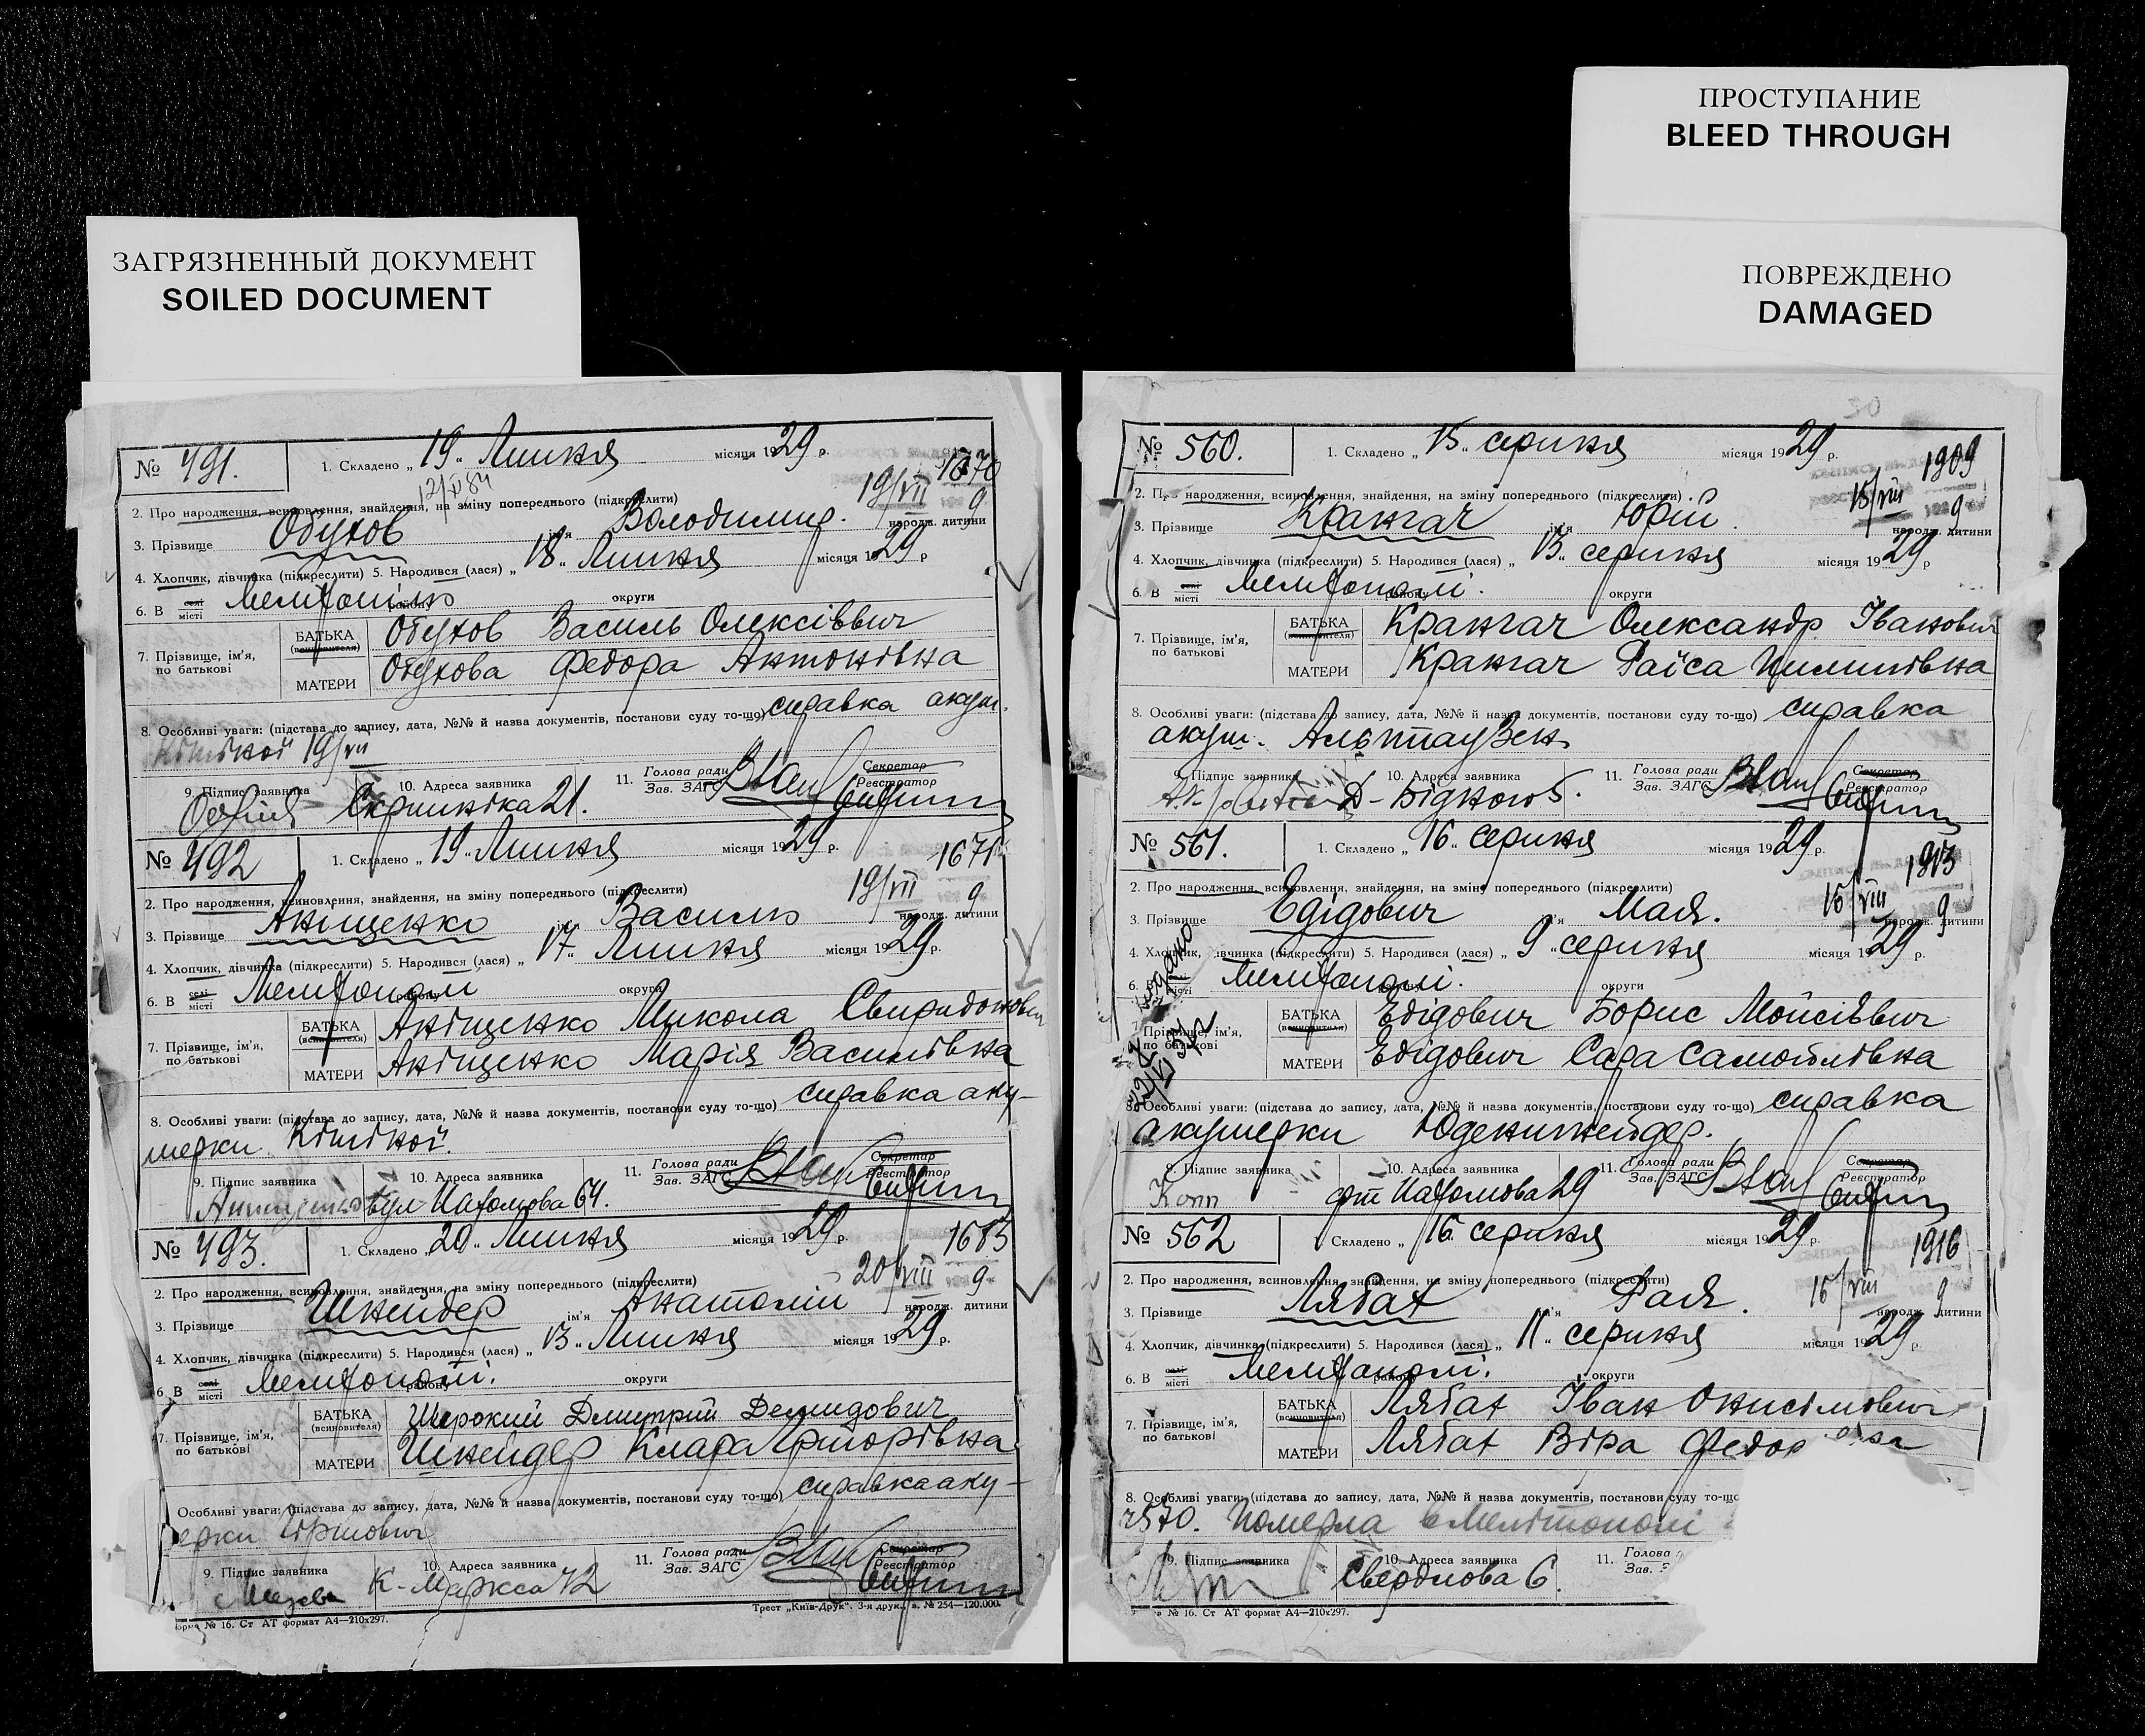 ПРОСТУПАНИЕ
BLEED THROUGH
ПОВРЕЖДЕНО
DAMAGED
ЗАГРЯЗНЕННЫЙ ДОКУМЕНТ
SOILED DOCUMENT
№ 491. 1. Складено „19„ Липня місяця 1929 р. 1670
12/XI 84 19/VII 9
2. Про народження, всиновлення, знайдення, на зміну попереднього (підкреслити)
3. Прізвище Обухов ім'я Володимир. народж. дитини
4. Хлопчик, дівчинка (підкреслити) 5. Народився (лася) „18„ Липня місяця 1929 р
6. В селі місті Мелітопілю району округи
7. Прізвище, ім'я, по батькові
БАТЬКА (всиновителя) Обухов Василь Олексіввич
МАТЕРИ Обухова Федора Антонівна
8. Особливі уваги: (підстава до запису, дата, №№ й назва документів, постанови суду то-що) справка акуш.
19/VII
9. Підпис заявника 10. Адреса заявника 11. Голова ради Зав. ЗАГС Секретар Реєстратор
Скрипніка 21.
№ 492 1. Складено „19„ Липня місяця 1929 р. 1671
19/VII 9
2. Про народження, всиновлення, знайдення, на зміну попереднього (підкреслити)
3. Прізвище Аніщенко ім'я Василь народж. дитини
4. Хлопчик, дівчинка (підкреслити) 5. Народився (лася) „17„ Липня місяця 1929 р.
6. В селі місті Мелітополі району округи
7. Прізвище, ім'я, по батькові
БАТЬКА (всиновителя) Аніщенко Микола Свиридонович
МАТЕРИ Аніщенко Марія Василівна
8. Особливі уваги: (підстава до запису, дата, №№ й назва документів, постанови суду то-що) справка аку-
шерки
9. Підпис заявника 10. Адреса заявника 11. Голова ради Зав. ЗАГС Секретар Реєстратор
вул 64.
№ 493. 1. Складено „20„ Липня місяця 1929 р. 1683
20/VIII 9
2. Про народження, всиновлення, знайдення, на зміну попереднього (підкреслити)
3. Прізвище Шнейдер ім'я Анатолій народж. дитини
4. Хлопчик, дівчинка (підкреслити) 5. Народився (лася) „13„ Липня місяця 1929 р.
6. В селі місті Мелітополі. району округи
7. Прізвище, ім'я, по батькові
БАТЬКА (всиновителя) Широкий Дмитрий Демидович
МАТЕРИ Шнейдер Клара Григорівна
Особливі уваги: (підстава до запису, дата, №№ й назва документів, постанови суду то-що) справка аку-
ерки
9. Підпис заявника 10. Адреса заявника 11. Голова ради Зав. ЗАГС Секретар Реєстратор
К-Маркса 72
№ 16. Ст АТ формат А4—210х297. Трест „Київ-Друк". 3-я друк. з. № 254—120.000.
№ 560. 1. Складено „15„ серпня місяця 1929 р. 1909
15/VIII 9
2. Про народження, всиновлення, знайдення, на зміну попереднього (підкреслити)
3. Прізвище Крангач ім'я Юрій. народж. дитини
4. Хлопчик, дівчинка (підкреслити) 5. Народився (лася) „13„ серпня місяця 1929 р
6. В селі місті Мелітополі. району округи
7. Прізвище, ім'я, по батькові
БАТЬКА (всиновителя) Крангач Олександр Іванович
МАТЕРИ Крангач Раїса Пилипівна
8. Особливі уваги: (підстава до запису, дата, №№ й назва документів, постанови суду то-що) справка
акуш. Альтгаузен
9. Підпис заявника 10. Адреса заявника 11. Голова ради Зав. ЗАГС Секретар Реєстратор
Д-Бідного 5.
№ 561. 1. Складено „16„ серпня місяця 1929 р. 1913
16/VIII 9
2. Про народження, всиновлення, знайдення, на зміну попереднього (підкреслити)
3. Прізвище Едідович ім'я Мая. народж. дитини
4. Хлопчик, дівчинка (підкреслити) 5. Народився (лася) „9„ серпня місяця 1929 р.
6. В місті Мелітополі. округи
7. Прізвище, ім'я, по батькові
БАТЬКА (всиновителя) Едідович Борис Мойсіввич
МАТЕРИ Едідович Сара Самойлівна
8. Особливі уваги: (підстава до запису, дата, №№ й назва документів, постанови суду то-що) справка
акушерки Юденшнейдер.
9. Підпис заявника 10. Адреса заявника 11. Голова ради Зав. ЗАГС Секретар Реєстратор
29
№ 562 Складено „16„ серпня місяця 1929 р. 1916
16/VIII 9
2. Про народження, всиновлення, знайдення, на зміну попереднього (підкреслити)
3. Прізвище Лябах ім'я Рая. народж. дитини
4. Хлопчик, дівчинка (підкреслити) 5. Народився (лася) „11„ серпня місяця 1929 р.
6. В селі місті Мелітополі. району округи
7. Прізвище, ім'я, по батькові
БАТЬКА (всиновителя) Лябах Іван Онисімович
МАТЕРИ Лябах Віра Федор
8. Особливі уваги: (підстава до запису, дата, №№ й назва документів, постанови суду то-що
Померла в Мелітополі
9. Підпис заявника 10. Адреса заявника 11. Голова Зав.
Свердлова 6.
№ 16. Ст АТ формат А4—210х297.